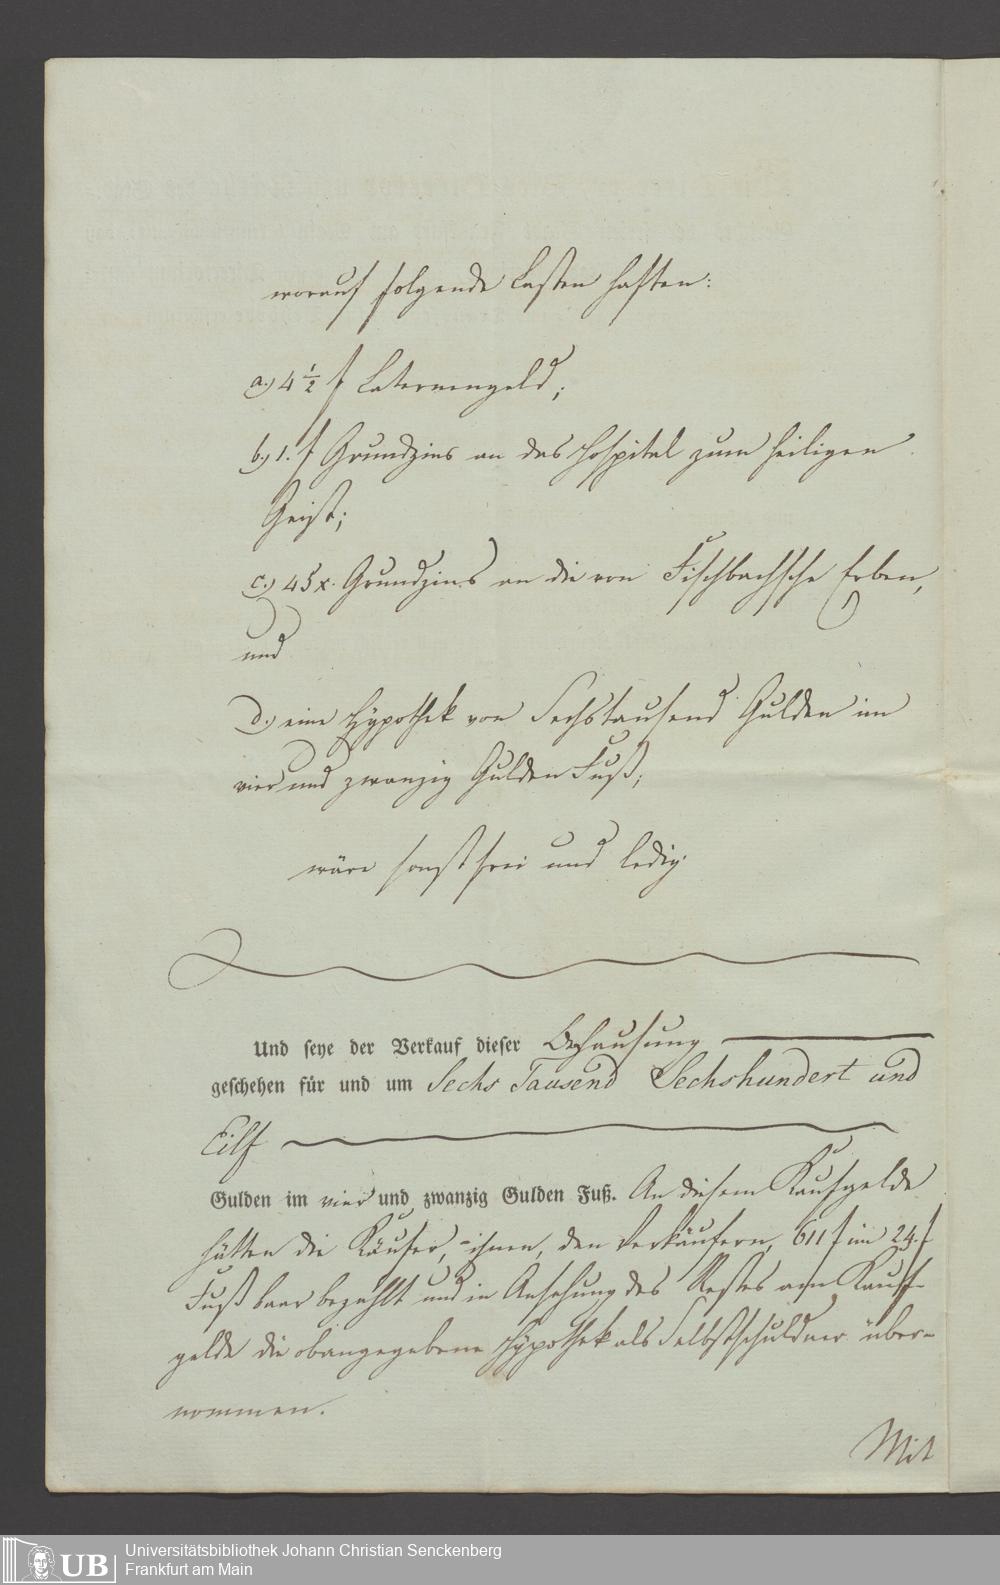 worauf folgende Lasten haften:
a.) 4 ½ f Laternengeld;
b.) 1. f Grundzins an das Hospital zum heiligen
Geist;
c.) 45 x. Grundzins an die von Fischbachsche Erben,
und
d.) eine Hÿpothek von Sechstausend Gulden im
vier und zwanzig Gulden Fuß;
wäre sonst frei und ledig.
Und seye der Verkauf dieser Behausung
geschehen für und um Sechs Tausend Sechshundert und
Eilf
Gulden im vier und zwanzig Gulden Fuß. An diesem Kaufgelde
hätten die Käufer, ihnen, den Verkäufern, 611 f im 24. f
Fuß baar bezahlt und in Ansehung des Restes am Kauf-
gelde die obangegebene Hÿpothek als Selbstschuldner über-
nommen.
Mit
UB Universitätsbibliothek Johann Christian Senckenberg
Frankfurt am Main